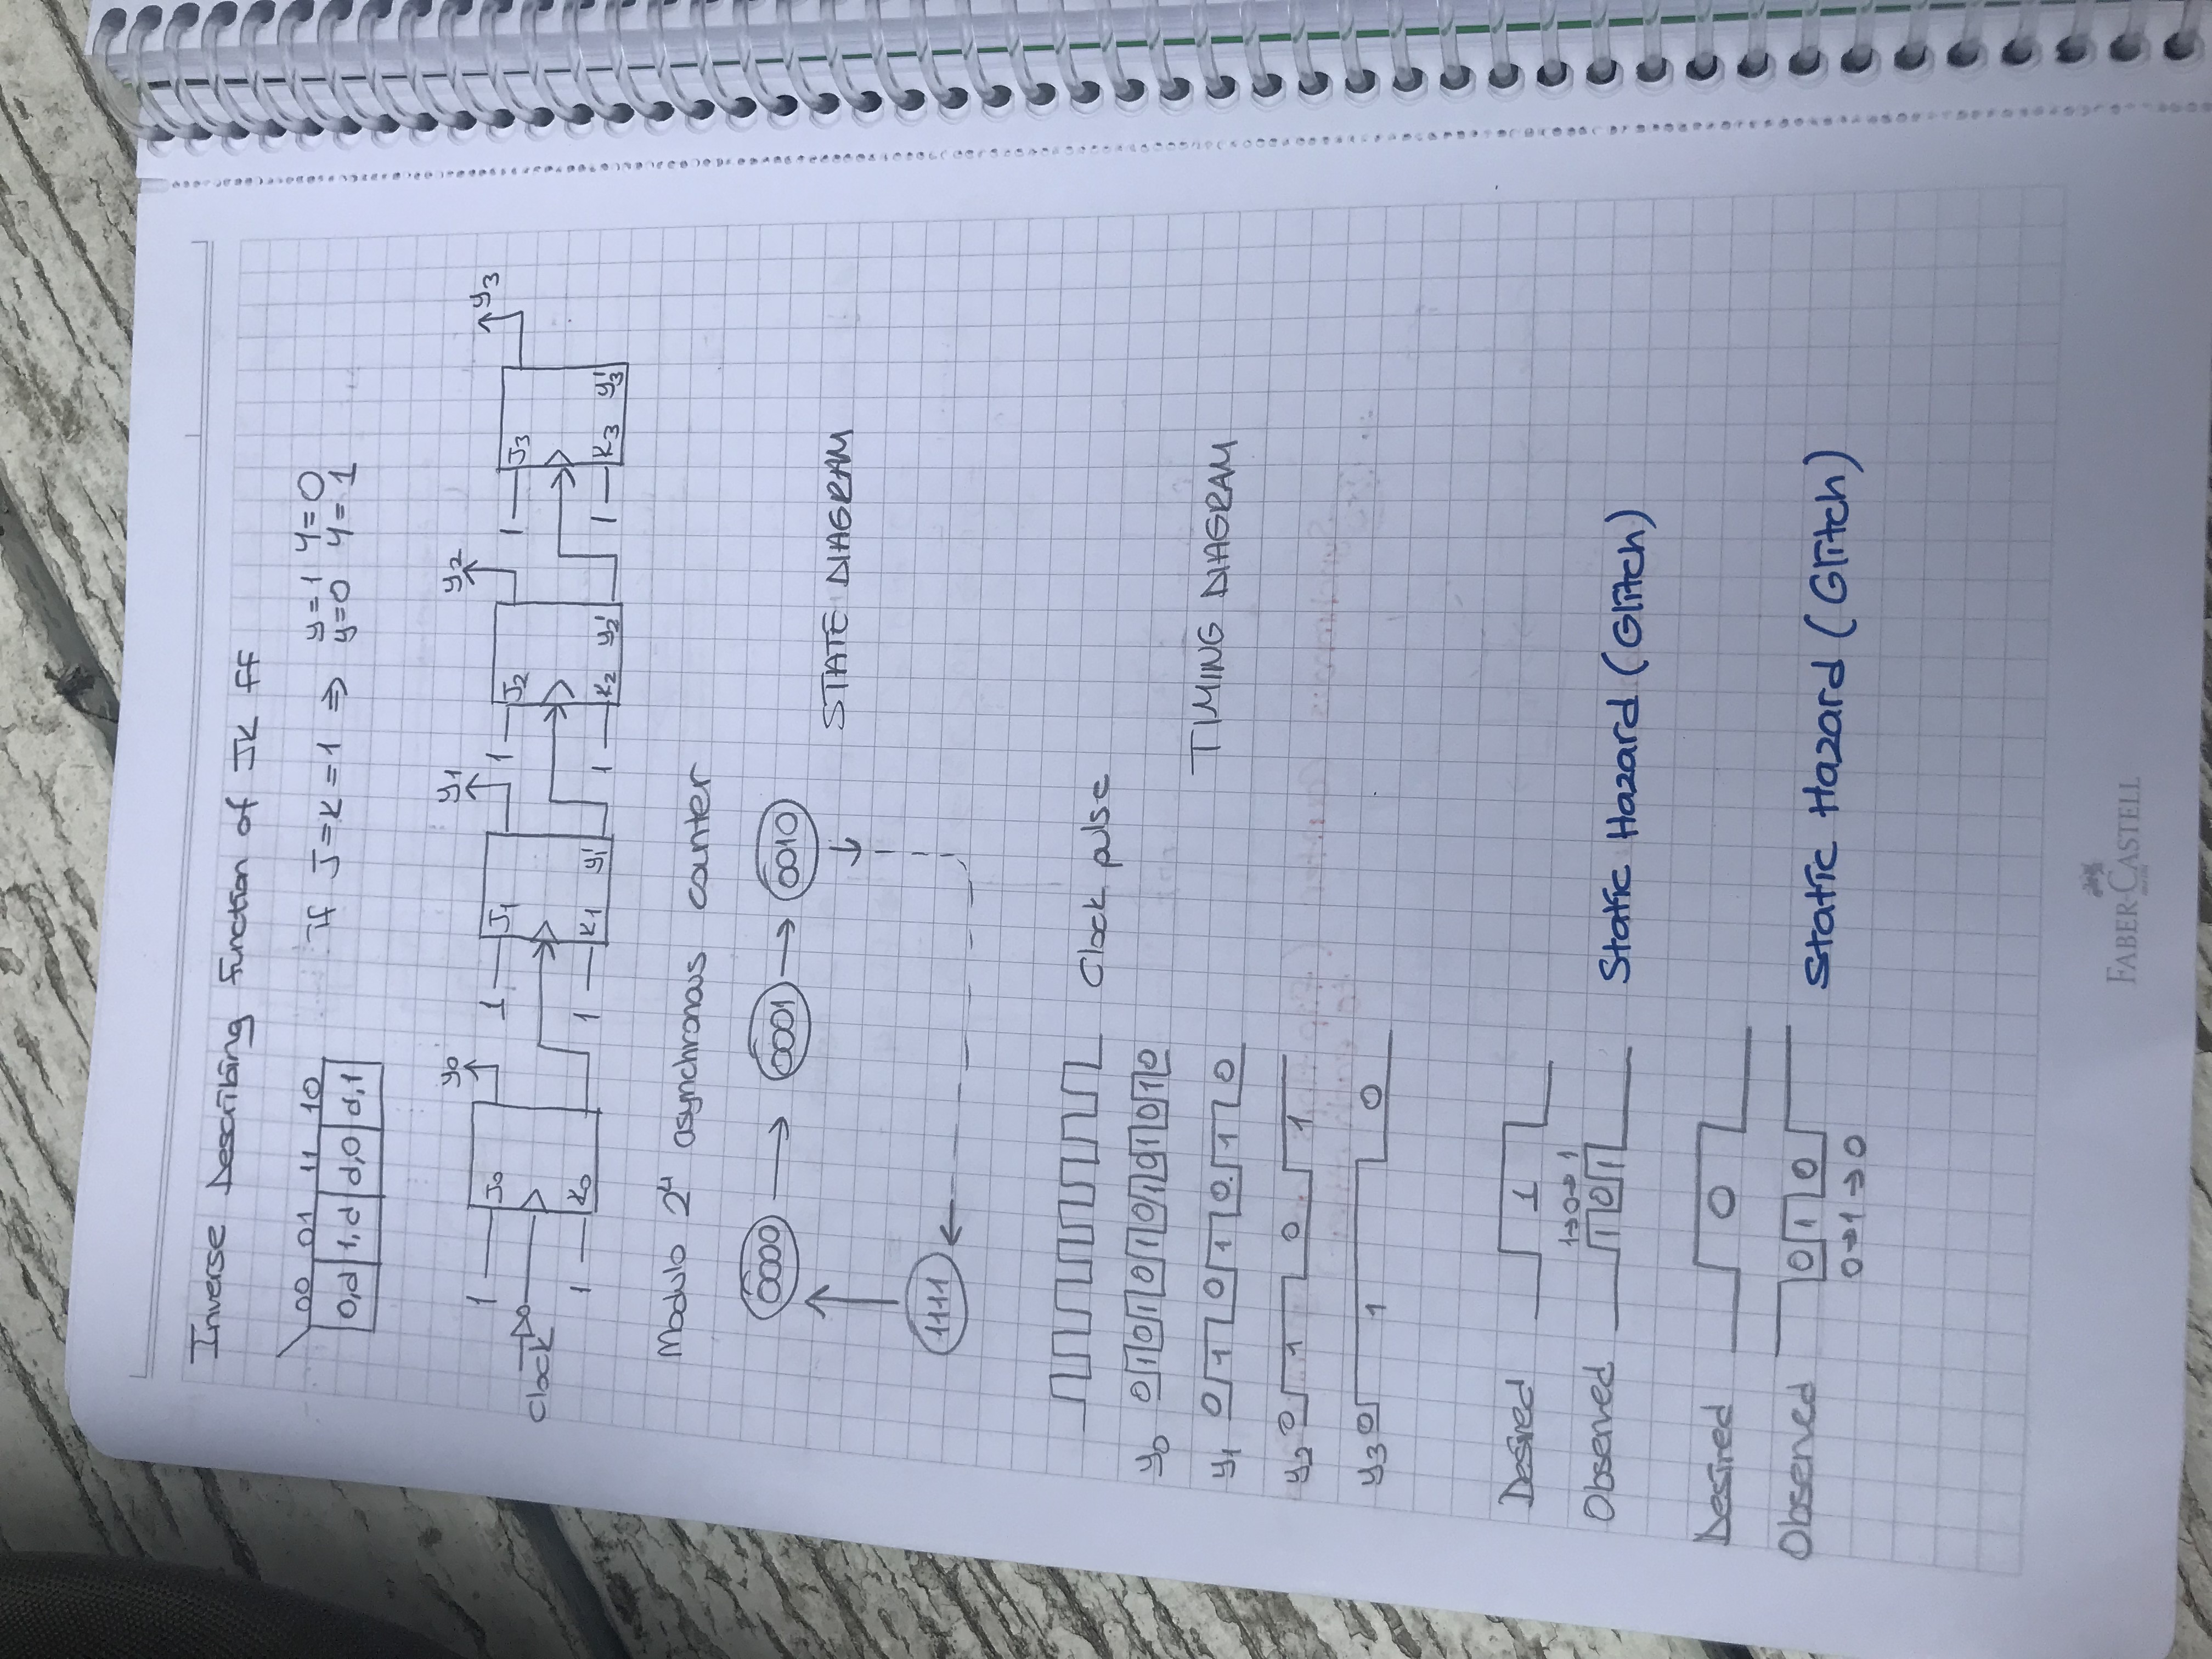 Inverse Describing function of JK ff
00 01 11 10
0,d 1,d d,0 d,1
if J=K=1 ⇒ y=1 Y=0
y=0 Y=1
y0 y1 y2 y3
1 J0 1 J1 1 J2 1 J3
Clock
1 K0 1 K1 y1' 1 K2 y2' 1 K3 y3'
Modulo 2⁴ asynchronous counter
0000 → 0001 → 0010
STATE DIAGRAM
1111
Clock pulse
y0 0 1 0 1 0 1 0 1 0 1 0 1 0
TIMING DIAGRAM
y1 0 1 0 1 0 1 0
y2 0 1 0 1
y3 0 1 0
Desired 1
1→0→1
Observed 1 0 1 Static Hazard (Glitch)
Desired 0
Observed 0 1 0 Static Hazard (Glitch)
0→1→0
FABER-CASTELL